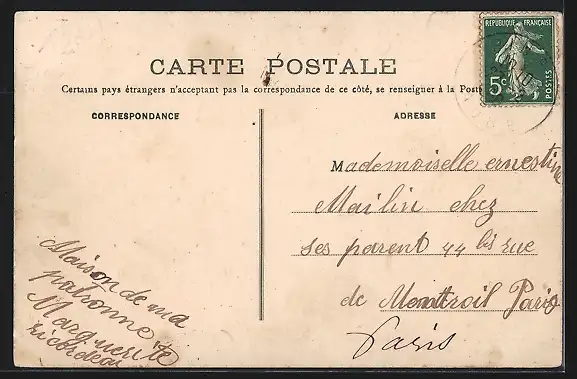 CARTE POSTALE
Certains pays étrangers n'acceptant pas la correspondance de ce côté, se renseigner à la Poste
CORRESPONDANCE
ADRESSE
REPUBLIQUE FRANÇAISE
5c
POSTES
Mademoiselle ernestine
Mailin chez
ses parent 44 bis rue
de Montroil Paris
Paris
Maison de ma
patronne
Marguerite
ricordeau